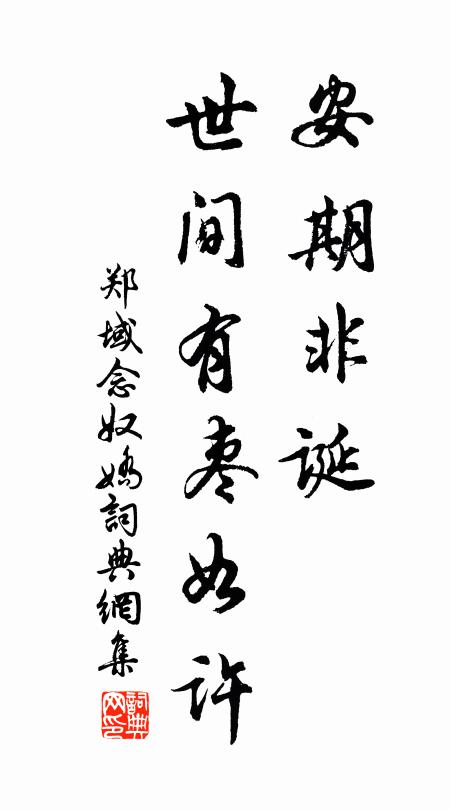 安期非誕
世间有枣如许
郑域念奴嬌詞典網集
詞典网印